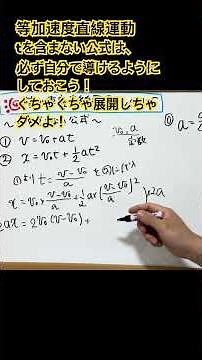 等加速度直線運動
tを含まない公式は、
必ず自分で導けるように
しておこう！
ぐちゃぐちゃ展開しちゃ
ダメよ！
公式〜
① v = v₀ + at
v₀, a
定数
② x = v₀t + ½at²
①より t = (v − v₀)/a
x = v₀ × (v − v₀)/a + ½a × ((v − v₀)/a)²
×2a
2ax = 2v₀(v − v₀) +
a =